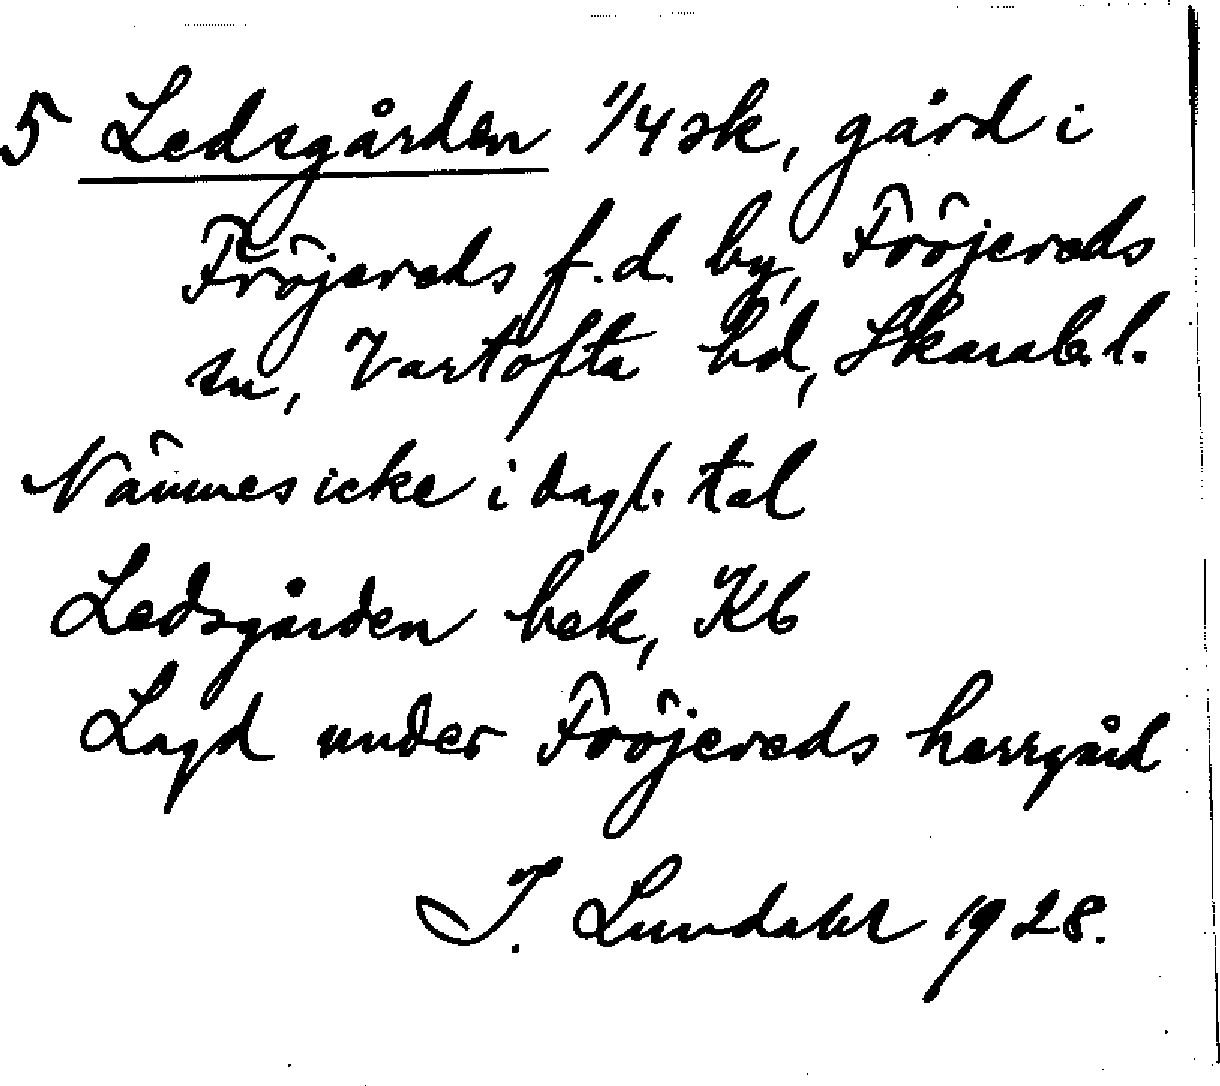 5 Ledsgården 1/4 sk, gård i
Fröjereds f.d. by, Fröjereds
sn, Vartofta hd, Skarab. l.
Nämnes icke i dagl. tal
Ledsgården bek, Kb
Lagd under Fröjereds herrgård
I. Lundahl 1928.